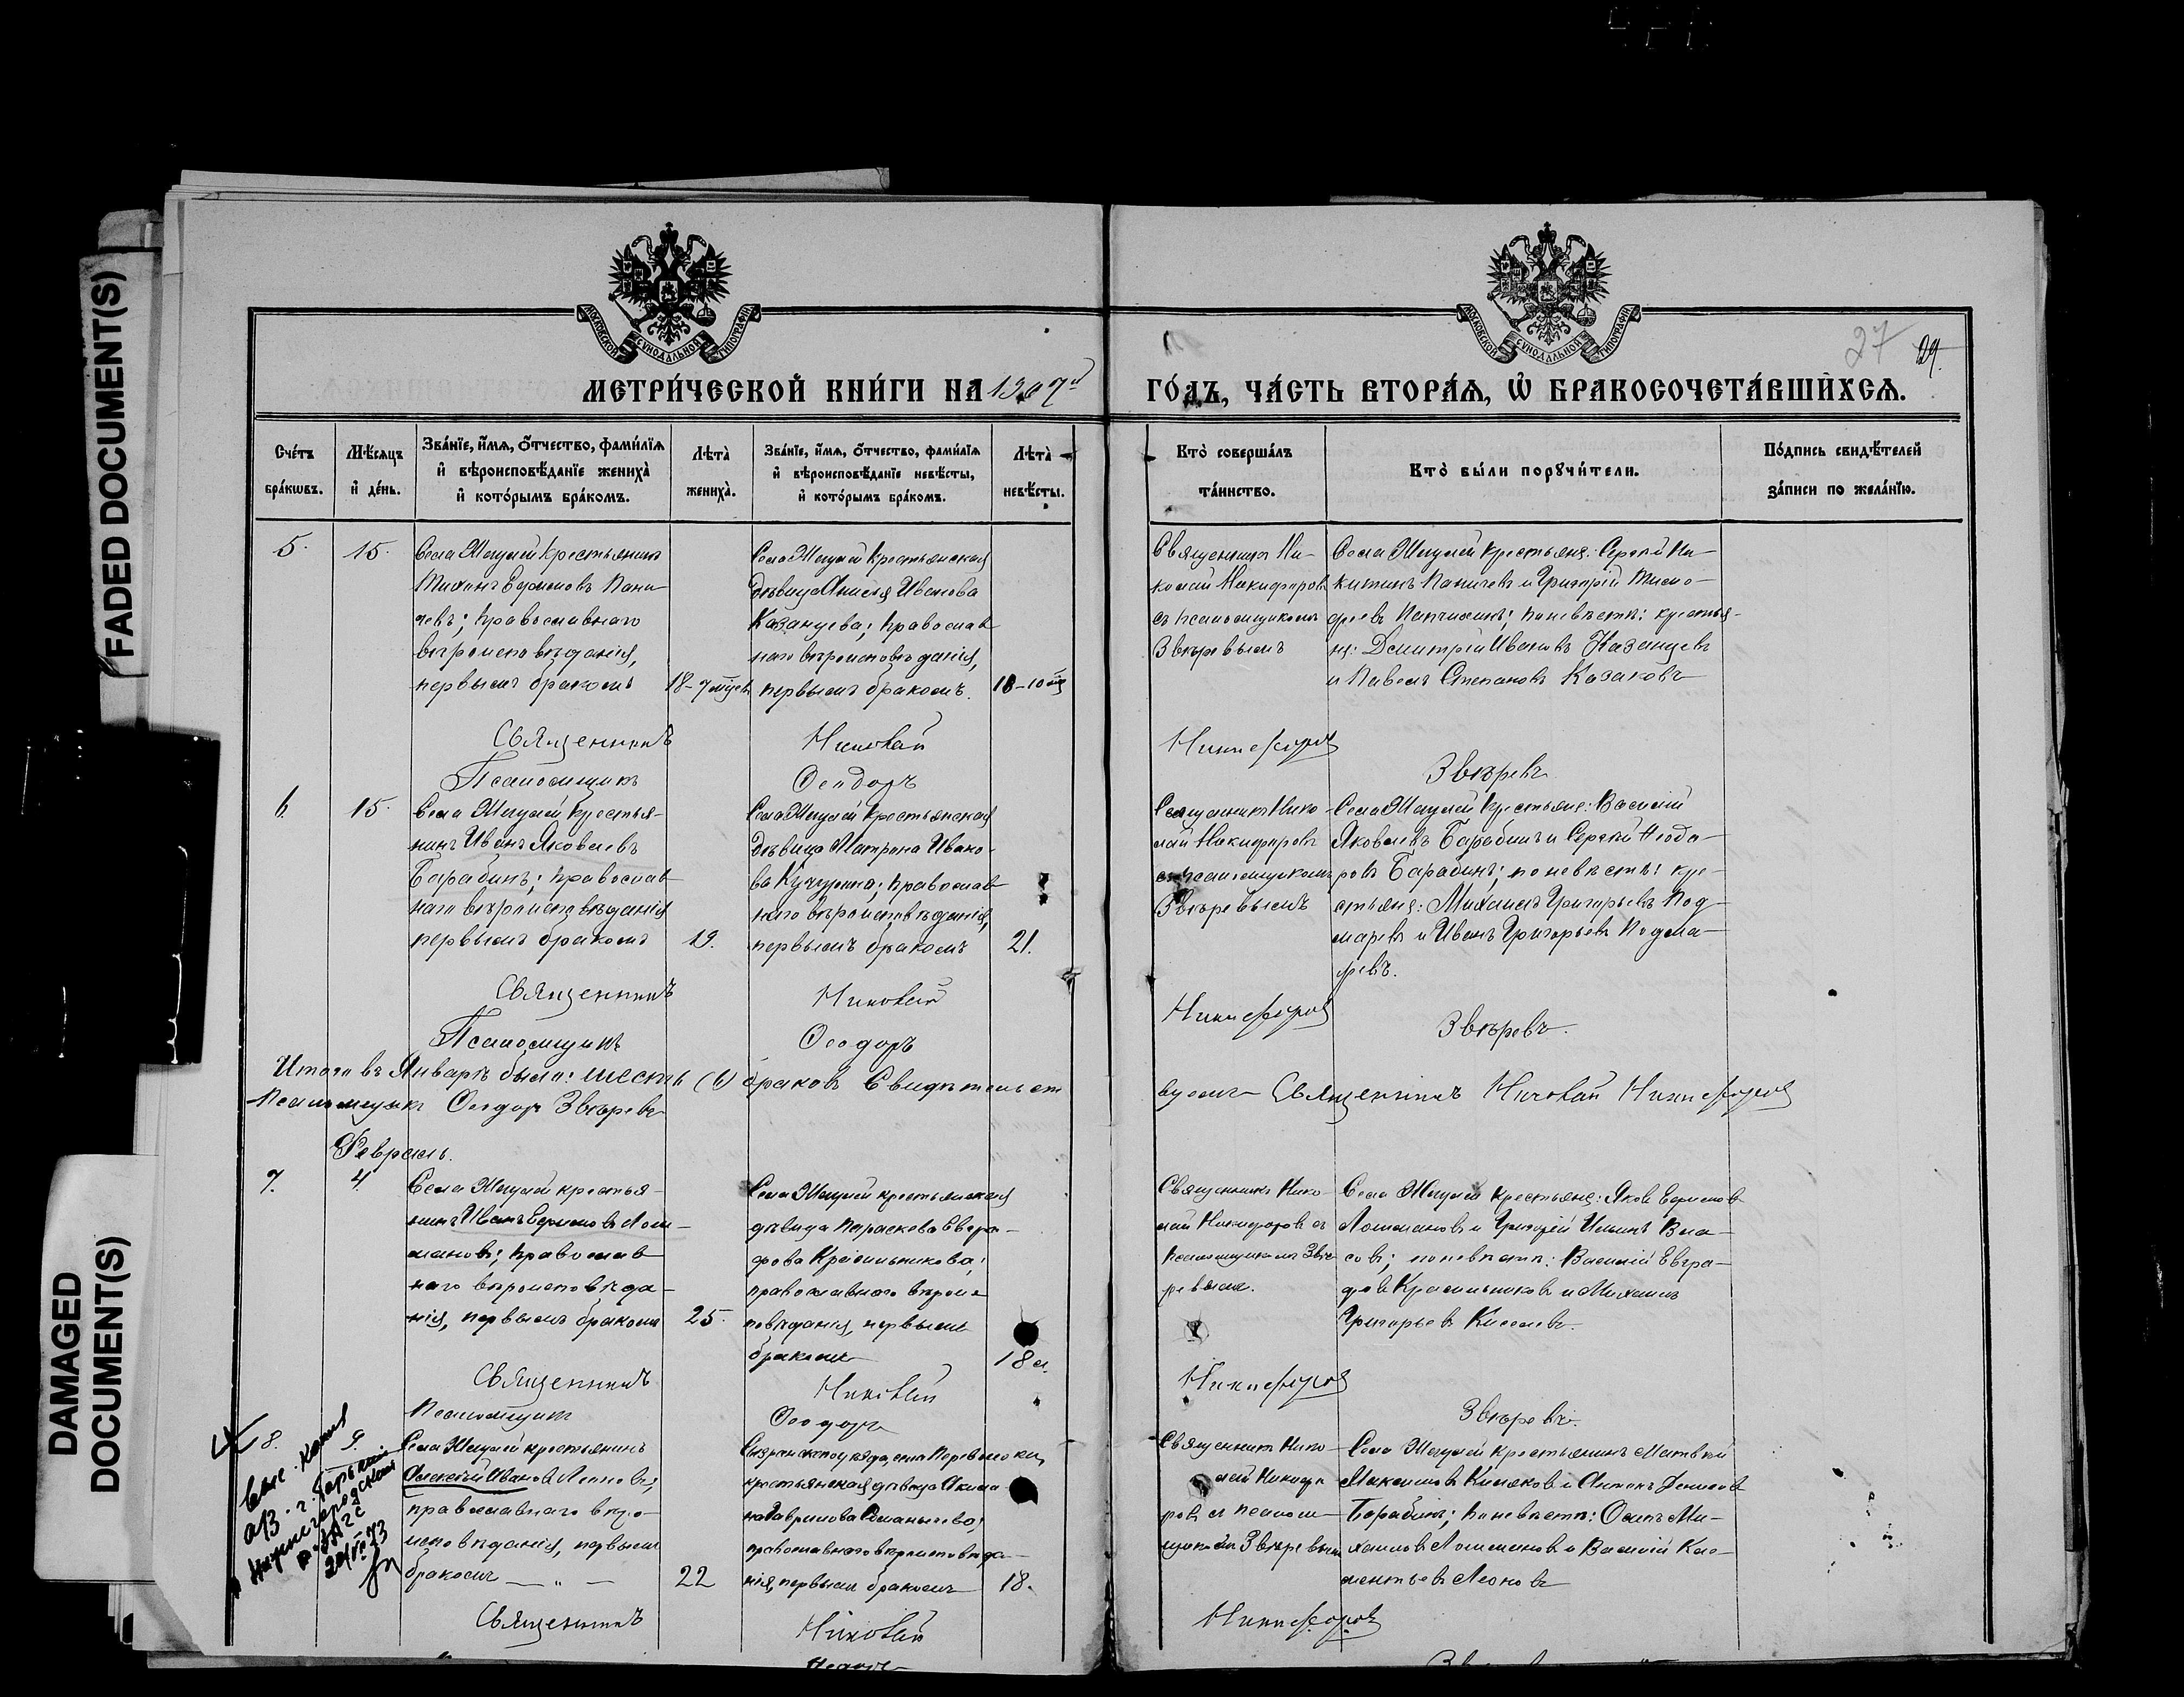 FADED DOCUMENT(S)
DAMAGED
DOCUMENT(S)
МОСКОВСКОЙ СѴНОДАЛЬНОЙ ТИПОГРАФІИ
МЕТРИ́ЧЕСКОЙ КНИ́ГИ НА 1907й
Сче́тъ
бра́кѡвъ.
Мѣ́сяцъ
и҆ де́нь.
Зва́нїе, и҆́мѧ, ѻ҆́тчество, фами́лїѧ
и҆ вѣроисповѣ́данїе жениха̀
и҆ кото́рымъ бра́комъ.
Лѣта̀
жениха̀.
Зва́нїе, и҆́мѧ, ѻ҆́тчество, фами́лїѧ
и҆ вѣроисповѣ́данїе невѣ́сты,
и҆ кото́рымъ бра́комъ.
Лѣта̀
невѣ́сты.
5.
15.
крестьянинъ
Тихонъ Ефимовъ Пани
чевъ; православнаго
вѣроисповѣданія,
первымъ бракомъ
крестьянская
дѣвица Анисья Иванова
Казанцева; православ
наго вѣроисповѣданія,
первымъ бракомъ.
Священникъ
Николай
Псаломщикъ
Ѳеодоръ
6.
15.
крестья-
нинъ Иванъ Яковлевъ
Барабинъ; православ
наго вѣроисповѣданія
первымъ бракомъ
19.
крестьянская
дѣвица Матрона Ивано-
ва православ
наго вѣроисповѣданія,
первымъ бракомъ
21.
Священникъ
Николай
Псаломщикъ
Ѳеодоръ
Итого въ Январѣ было: шесть (6) браковъ Свидѣтельст
Псаломщикъ Ѳеодоръ Звѣревъ
Февраль.
7.
4.
крестья-
нинъ Иванъ Ефимовъ Лош-
мановъ; православ
наго вѣроисповѣда-
нія, первымъ бракомъ
25.
крестьянская
дѣвица Параскева Евгра-
фова Красильникова;
православнаго вѣроис
повѣданія, первымъ
бракомъ
18 л.
Священникъ
Николай
Псаломщикъ
Ѳеодоръ
8.
9.
крестьянинъ
Алексѣй Ивановъ Леоновъ;
православнаго вѣро-
исповѣданія, первымъ
бракомъ — „ —
22
крестьянская дѣвица Акили
на Гаврилова
православнаго вѣроисповѣда-
нія, первымъ бракомъ
18.
Священникъ
Николай
МОСКОВСКОЙ СѴНОДАЛЬНОЙ ТИПОГРАФІИ
27
29.
ГО́ДЪ, ЧА́СТЬ ВТОРА́Ѧ, Ѡ҆ БРАКОСОЧЕТА́ВШИХСѦ.
Кто̀ соверша́лъ
та́инство.
Кто̀ бы́ли порꙋчи́тели.
По́дпись свидѣ́телей
за́писи по жела́нїю.
Священникъ Ни-
колай Никифоровъ
съ псаломщикомъ
Звѣревымъ
крестьяне: Сергѣй Ни-
китинъ Паничевъ и Григорій Тимо-
по невѣстѣ: крестья-
не: Димитрій Ивановъ Казанцевъ
и Павелъ Степановъ Казаковъ
Никифоровъ
Звѣревъ
Священникъ Нико-
лай Никифоровъ
съ псаломщикомъ
Звѣревымъ
крестьяне: Василій
Яковлевъ Барабинъ и Сергѣй Ѳедо-
ровъ Барабинъ; по невѣстѣ: кре-
стьяне: Михаилъ Григорьевъ Под-
маревъ и Иванъ Григорьевъ Подма-
ревъ.
Никифоровъ
Звѣревъ.
вуемъ Священникъ Николай Никифоровъ
Священникъ Нико-
лай Никифоровъ съ
псаломщикомъ Звѣ-
ревымъ.
крестьяне: Яковъ Ефимовъ
Лошмановъ и Григорій Ильинъ Вла-
совъ; по невѣстѣ: Василій Евгра-
фовъ Красильниковъ и Михаилъ
Григорьевъ Киселевъ.
Никифоровъ
Звѣревъ.
Священникъ Нико-
лай Никифо
ровъ съ псалом-
щикомъ Звѣревымъ
крестьянинъ Матвѣй
Максимовъ и Антонъ Денисовъ
Барабинъ; по невѣстѣ: Осипъ Ми-
хаиловъ Лошмановъ и Василій Кле-
ментьевъ Леоновъ
Никифоровъ